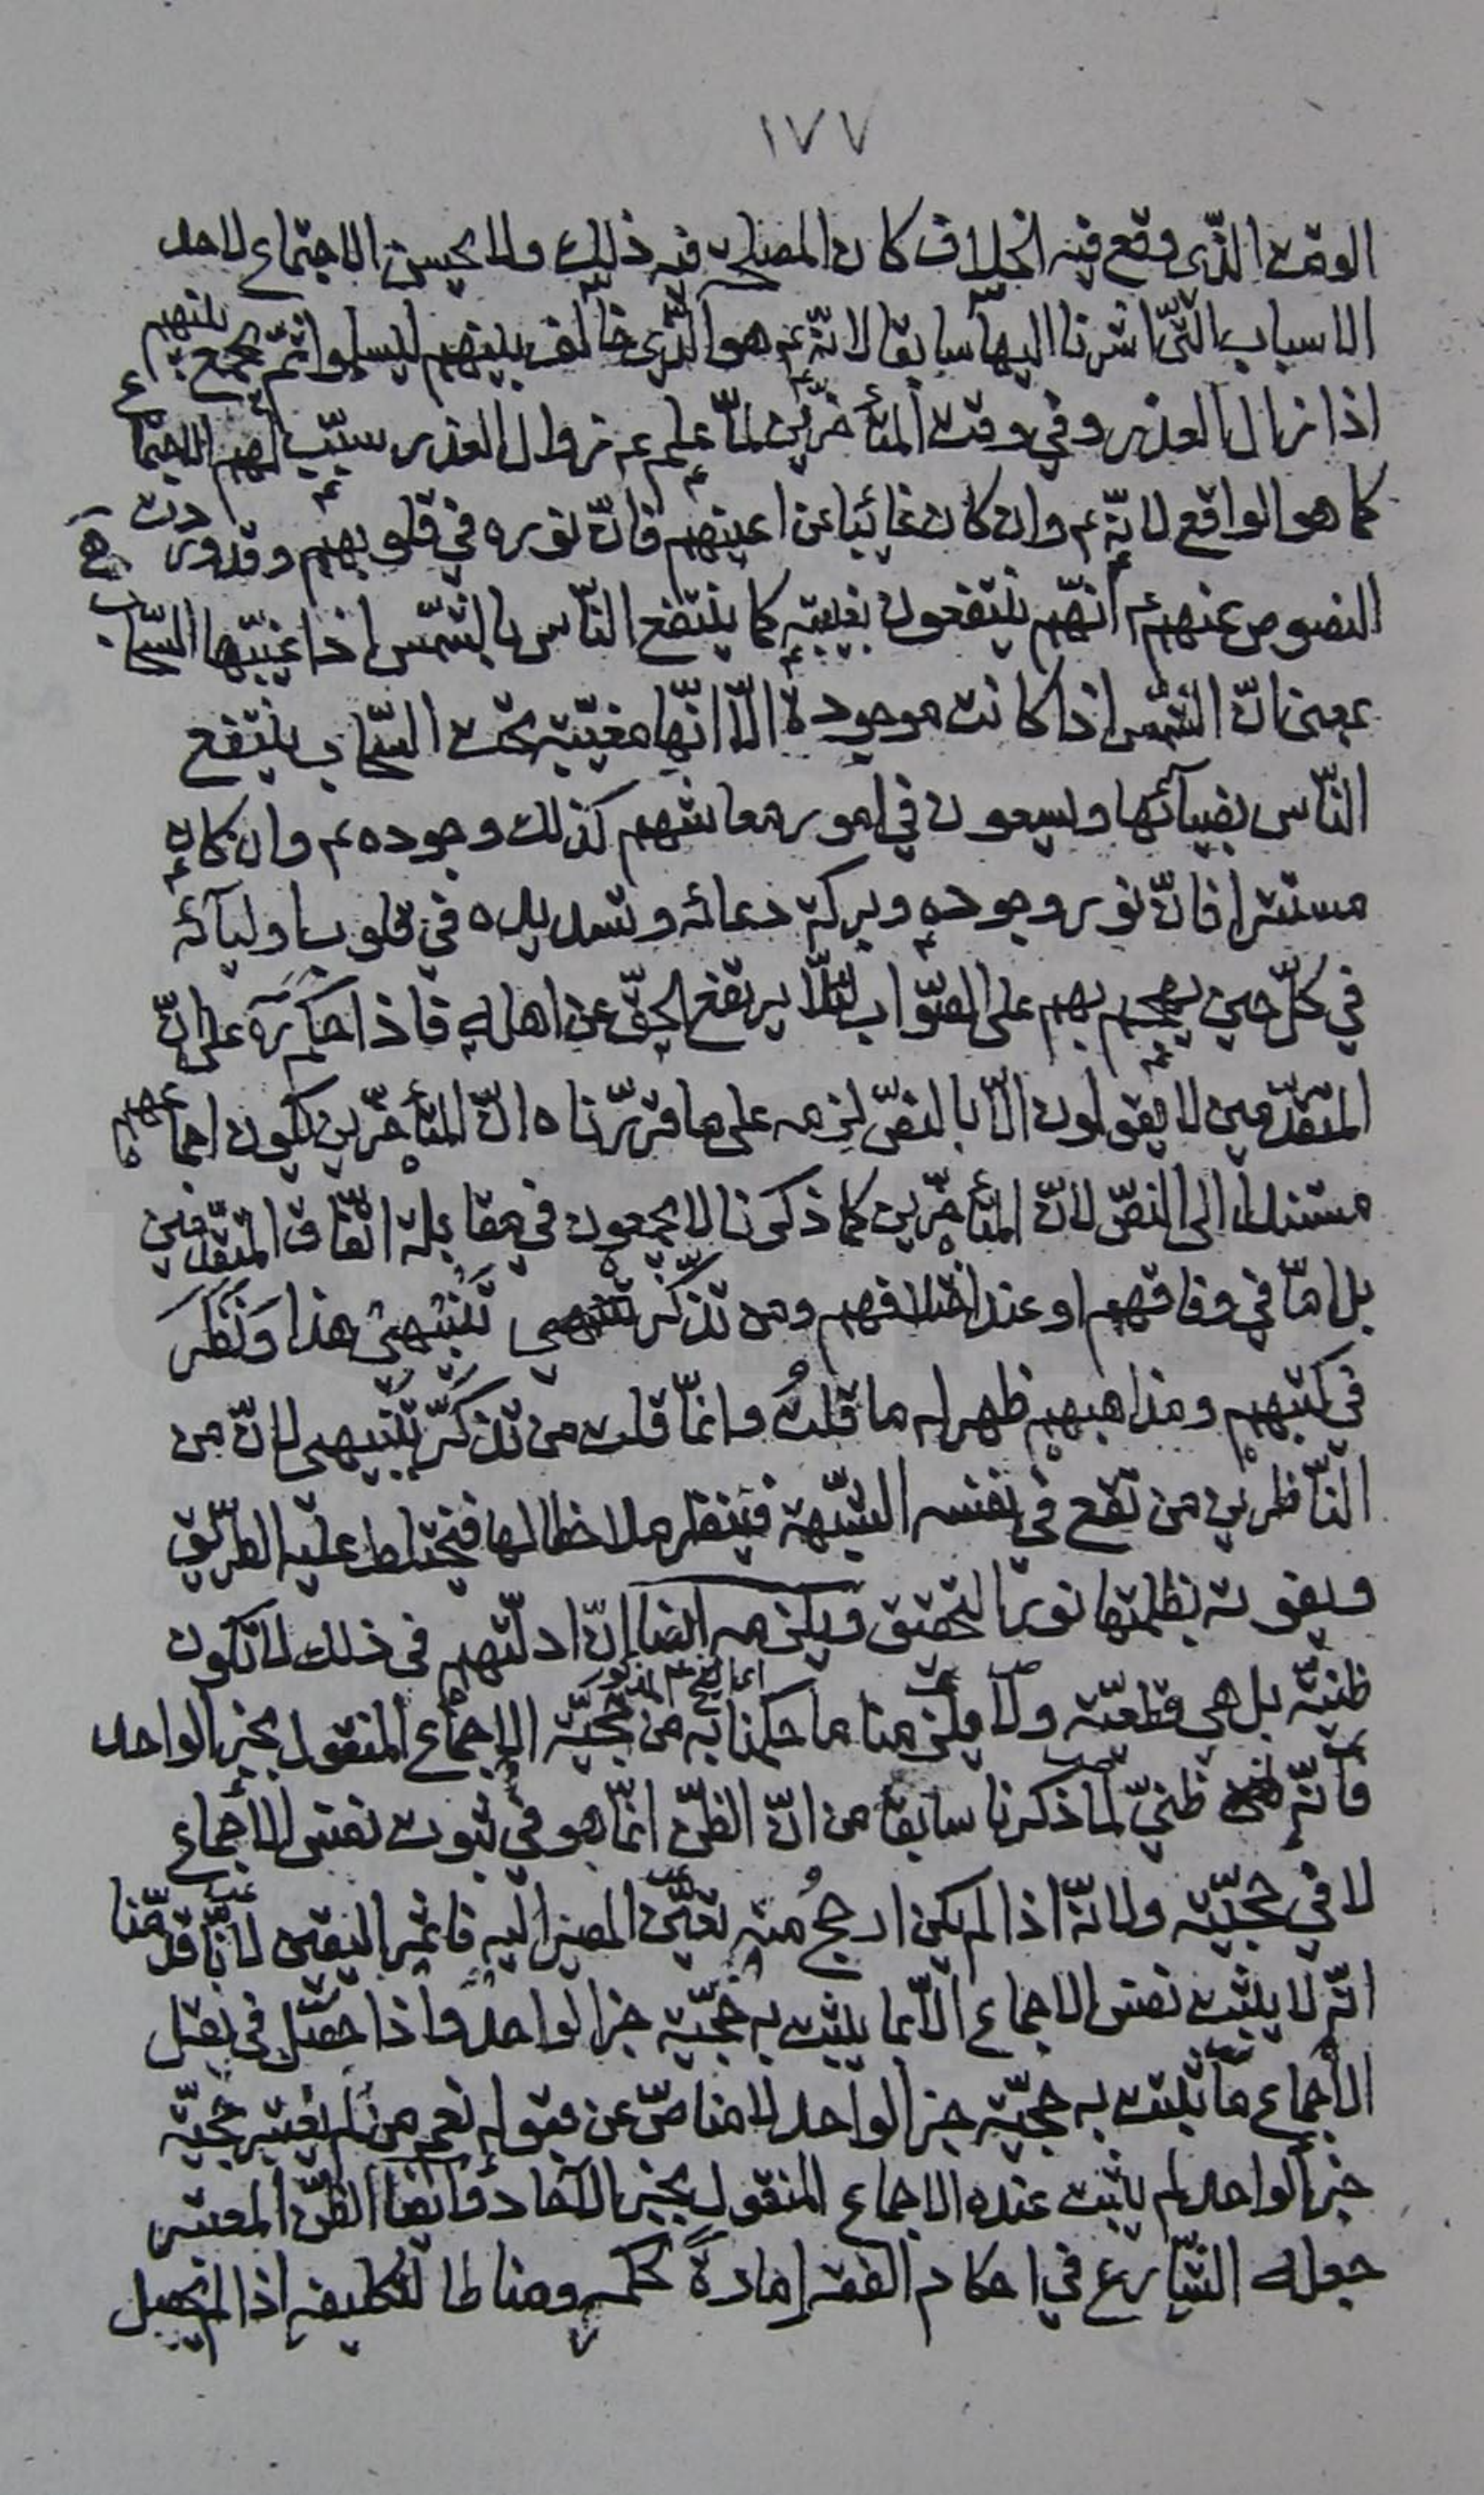 ١٧٧
الوقت الذّى وقع فيه الخلاف كان المصلحة فيه ذلك ولا يحسن الاجتماع لاحد
الاسباب التّى اشرنا اليها سابقا لانّه ع هو الذّى خالف بينهم ليسلموا ثمّ يجمع بينهم
اذا زال العذر وفى وقت المتأخّرين لمّا علم ع زوال العذر سبّب لهم الاجتماع
كما هو الواقع لانّه ع وان كان غائبا عن اعينهم فانّ نوره فى قلوبهم وقد وردت
النصوص عنهم ع انّهم ينتفعون بغيبته كما ينتفع النّاس بالشّمس اذا غيّبها السّحاب
بمعنى انّ الشّمس اذا كانت موجودة الّا انّها مغيّبة تحت السّحاب ينتفع
النّاس بضيآئها ويسعون فى امور معاشهم كذلك وجوده ع وان كان
مستترا فانّ نور وجوده وبركة دعائه وتسديده فى قلوب اوليآئه
فى كلّ حين يهجم بهم على الصّواب لئلّا يرتفع الحقّ عن اهله فاذا حكم ره على انّ
المتقدّمين لا يقولون الّا بالنصّ لزمه على ما قرّرناه انّ المتأخّرين يكون اجماعهم
مستندا الى النصّ لانّ المتأخّرين كما ذكرنا لا يجمعون فى مقابلة اتّفاق المتقدّمين
بل امّا فى وفاقهم او عند اختلافهم ومن تذكّر تنبيهى هذا ونظر
فى كتبهم ومذاهبهم ظهر له ما قلتُ وانّما قلت من تذكّر تنبيهى لانّ من
النّاظرين من تقع فى نفسه الشّبهة فينظر ملاحظا لها فيختلط عليه الطّريق
ويفوته بظلمتها نور التحقيق ويلزمه ايضا انّ ادلّتهم فى ذلك لا تكون
ظنيّة بل هى قطعيّة ولا يلزمنا ما حكمنا به من حجّيّة الاجماع المنقول بخبر الواحد
فانّه ظنىّ لما ذكرنا سابقا من انّ الظنّ انّما هو فى ثبوت نفس الاجماع
لا فى حجيّته ولانّه اذا لم يكن ارجحُ منه تعيّن المصير اليه فاثمر اليقين لأنّا قدّمنا
انّه لا يثبت نفس الاجماع الّا بما يثبت به حجّيّة خبر الواحد واذا حصل فى نقل
الأجماع ما يثبت به حجيّة خبر الواحد لا مناصّ عن قبوله نعم من لم يعتبر حجيّة
خبر الواحد لم يثبت عنده الاجماع المنقول بخبر الآحاد وايضا الظنّ المعتبر
جعله الشّارع فى احكام الفقه امارةً لحكمه ومناطا لتكليفه اذا لم يحصل